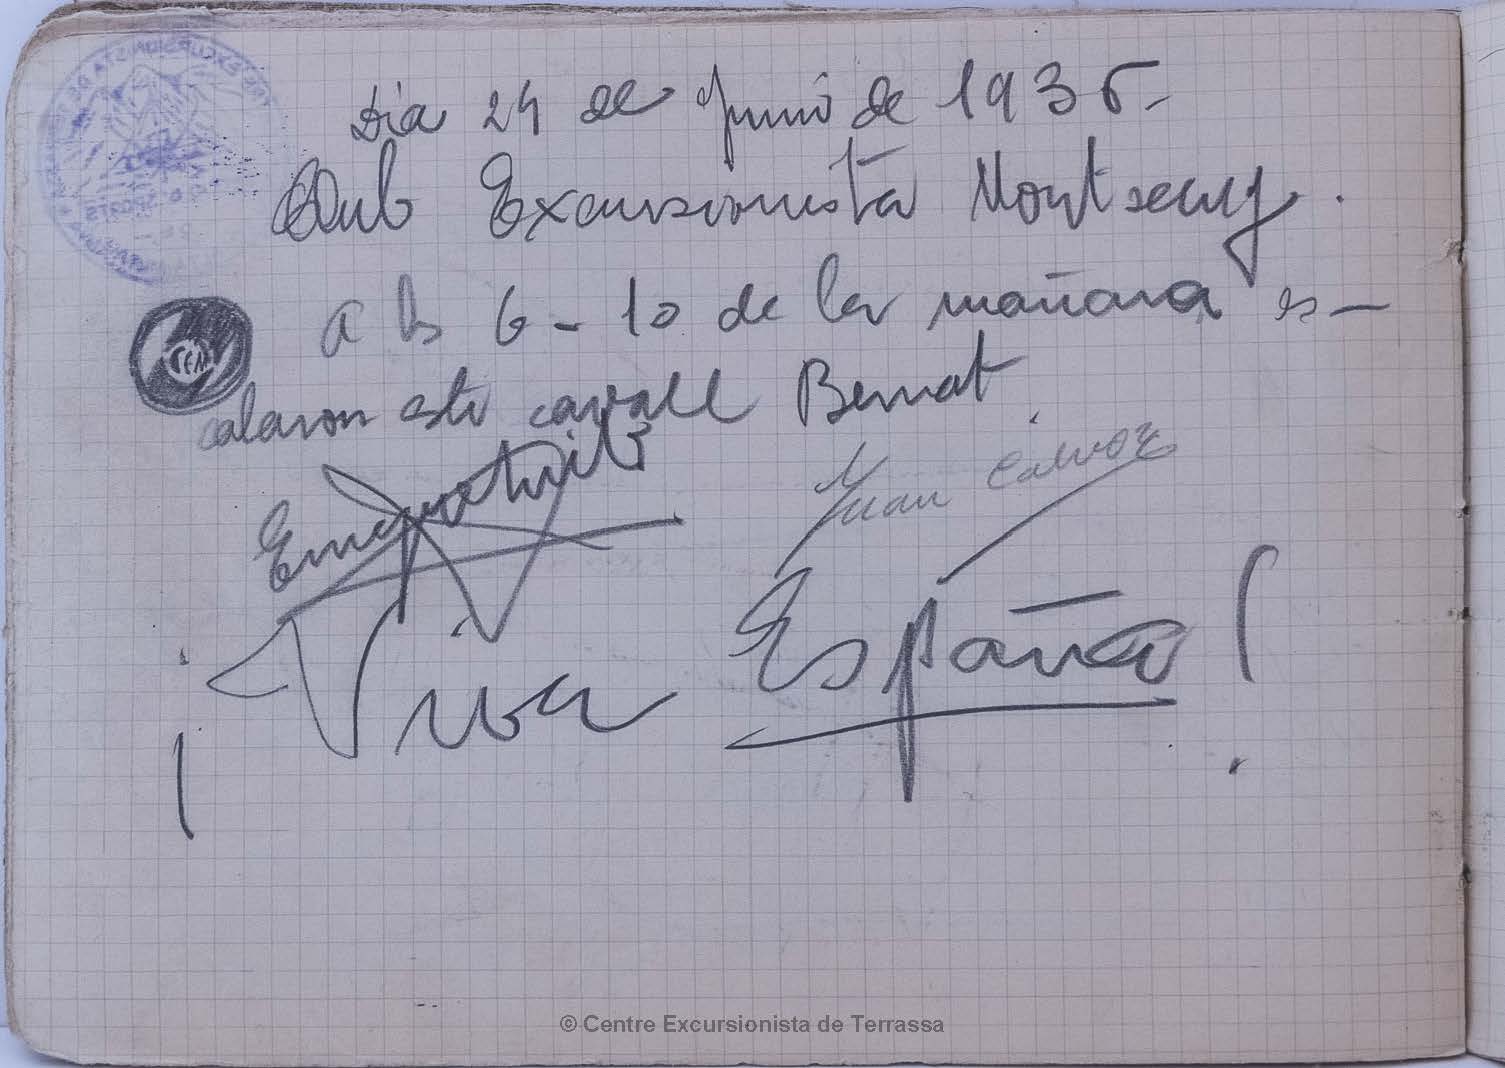 Dia 24 de Junio de 1935-
Club Excursionista Montseny.
a las 6-10 de la mañana es-
calaron este cavall Bernat.
Juan Calvo
¡Viva España!
CEM
© Centre Excursionista de Terrassa